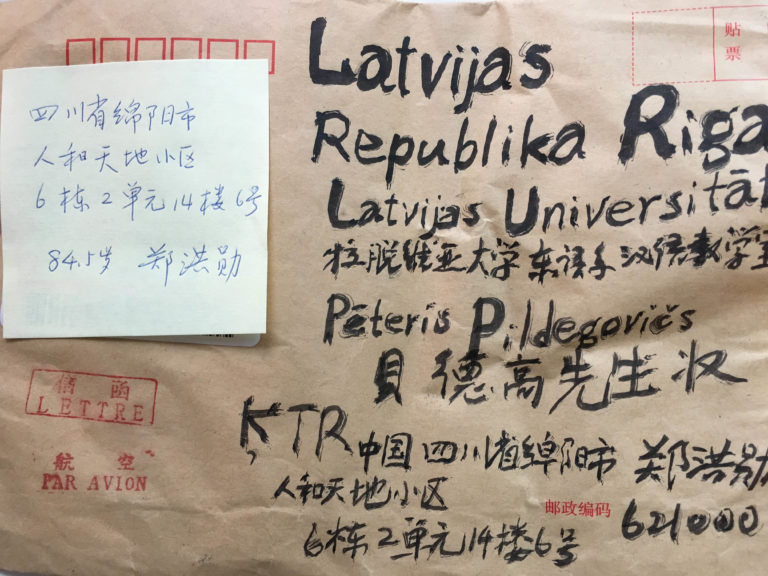 四川省绵阳市
人和天地小区
6栋2单元14楼6号
84.5岁 郑洪勋
贴
票
Latvijas
Republika Riga
Latvijas Universitāt
拉脱维亚大学东语系汉语教学室
Pēteris Pildegovičs
貝德高先生收
信函
LETTRE
航空
PAR AVION
ĶTR 中国四川省绵阳市 郑洪勋
人和天地小区
邮政编码 621000
6栋2单元14楼6号